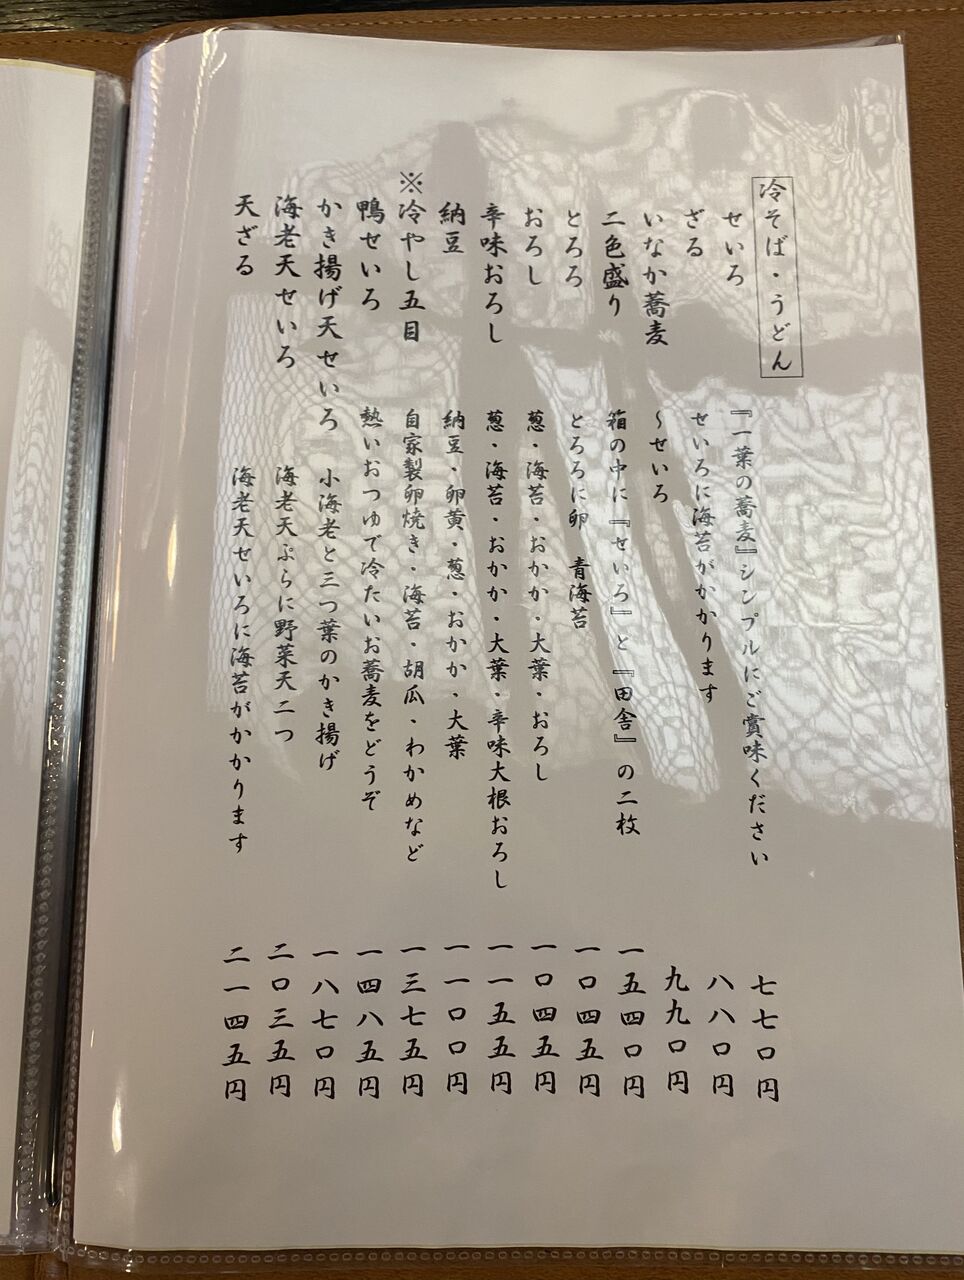 冷そば・うどん
せいろ 『一葉の蕎麦』シンプルにご賞味ください 七七〇円
ざる せいろに海苔がかかります 八八〇円
いなか蕎麦 〜せいろ 九九〇円
二色盛り 箱の中に『せいろ』と『田舎』の二枚 一五四〇円
とろろ とろろに卵 青海苔 一〇四五円
おろし 葱・海苔・おかか・大葉・おろし 一〇四五円
辛味おろし 葱・海苔・おかか・大葉・辛味大根おろし 一一五五円
納豆 納豆・卵黄・葱・おかか・大葉 一一〇〇円
※冷やし五目 自家製卵焼き・海苔・胡瓜・わかめなど 一三七五円
鴨せいろ 熱いおつゆで冷たいお蕎麦をどうぞ 一四八五円
かき揚げ天せいろ 小海老と三つ葉のかき揚げ 一八七〇円
海老天せいろ 海老天ぷらに野菜天二つ 二〇三五円
天ざる 海老天せいろに海苔がかかります 二一四五円